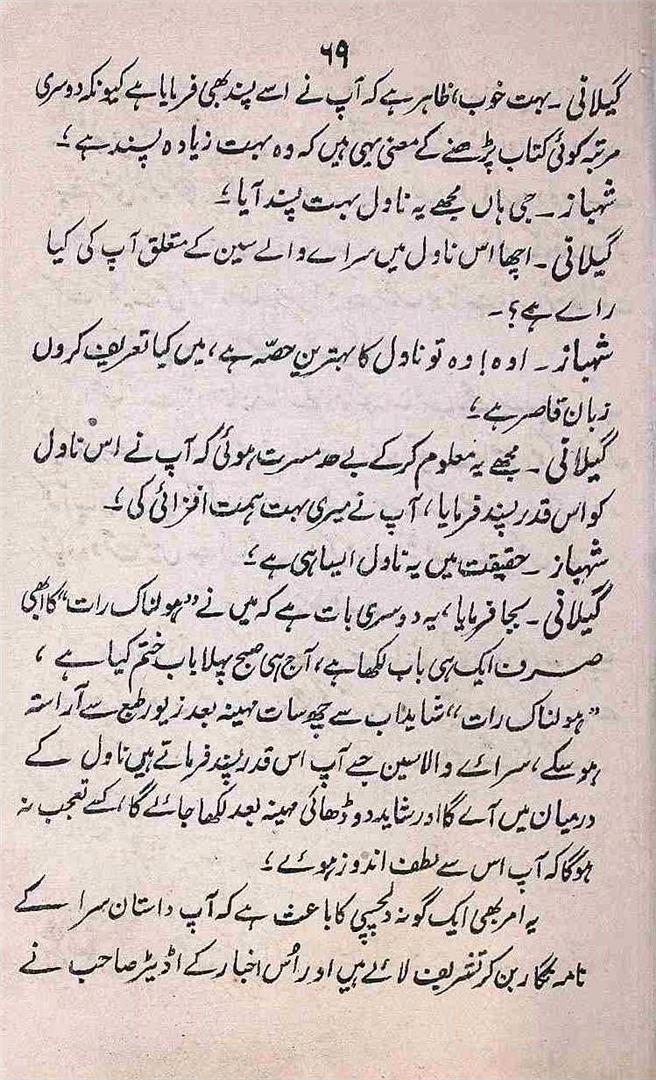 ۶۹
گیلانی ۔ بہت خوب، ظاہر ہے کہ آپ نے اسے پسند بھی فرمایا ہے کیونکہ دوسری
مرتبہ کوئی کتاب پڑھنے کے معنی یہی ہیں کہ وہ بہت زیادہ پسند ہے ؛
شہباز ۔ جی ہاں مجھے یہ ناول بہت پسند آیا ؛
گیلانی ۔ اچھا اس ناول میں سراے والے سین کے متعلق آپ کی کیا
راے ہے ؟ ۔
شہباز ۔ اوہ ! وہ تو ناول کا بہترین حصّہ ہے ، میں کیا تعریف کروں
زبان قاصر ہے ؛
گیلانی ۔ مجھے یہ معلوم کر کے بے حد مسرت ہوئی کہ آپ نے اس ناول
کو اس قدر پسند فرمایا ، آپ نے میری بہت ہمت افزائی کی ؛
شہباز ۔ حقیقت میں یہ ناول ایسا ہی ہے ؛
گیلانی ۔ بجا فرمایا ، یہ دوسری بات ہے کہ میں نے ”ہولناک رات“ کا ابھی
صرف ایک ہی باب لکھا ہے ، آج ہی صبح پہلا باب ختم کیا ہے ،
”ہولناک رات“ شاید اب سے چھ سات مہینہ بعد زیور طبع سے آراستہ
ہو سکے ، سرائے والا سین جسے آپ اس قدر پسند فرماتے ہیں ناول کے
درمیان میں آے گا اور شاید دو ڈھائی مہینہ بعد لکھا جائے گا ، کسے تعجب نہ
ہوگا کہ آپ اس سے لطف اندوز ہوئے ؛
یہ امر بھی ایک گونہ دلچسپی کا باعث ہے کہ آپ داستان سرا کے
نامہ نگار بن کر تشریف لائے ہیں اور اُس اخبار کے اڈیٹر صاحب نے